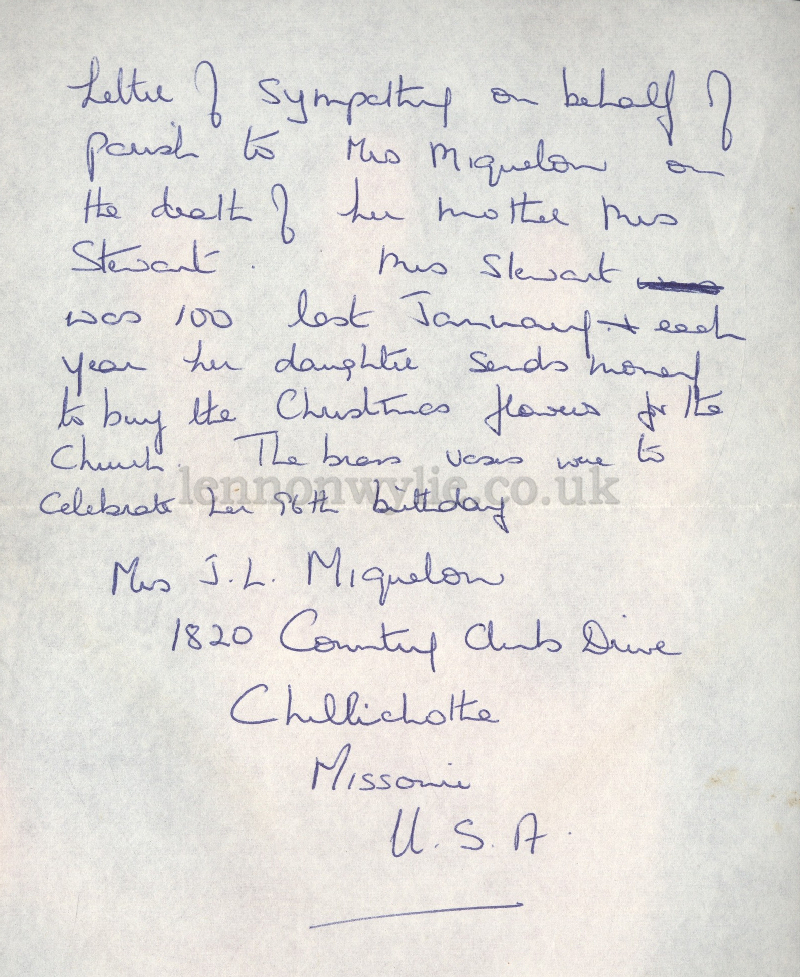 Letter of sympathy on behalf of
parish to Mrs Miquelon on
the death of her mother Mrs
Stewart. Mrs Stewart
was 100 last January + each
year her daughter sends money
to buy the Christmas flowers for the
Church. The brass vases were to
celebrate her 96th birthday
lennonwylie.co.uk
Mrs J.L. Miquelon
1820 Country Club Drive
Chillichothe
Missouri
U.S.A.